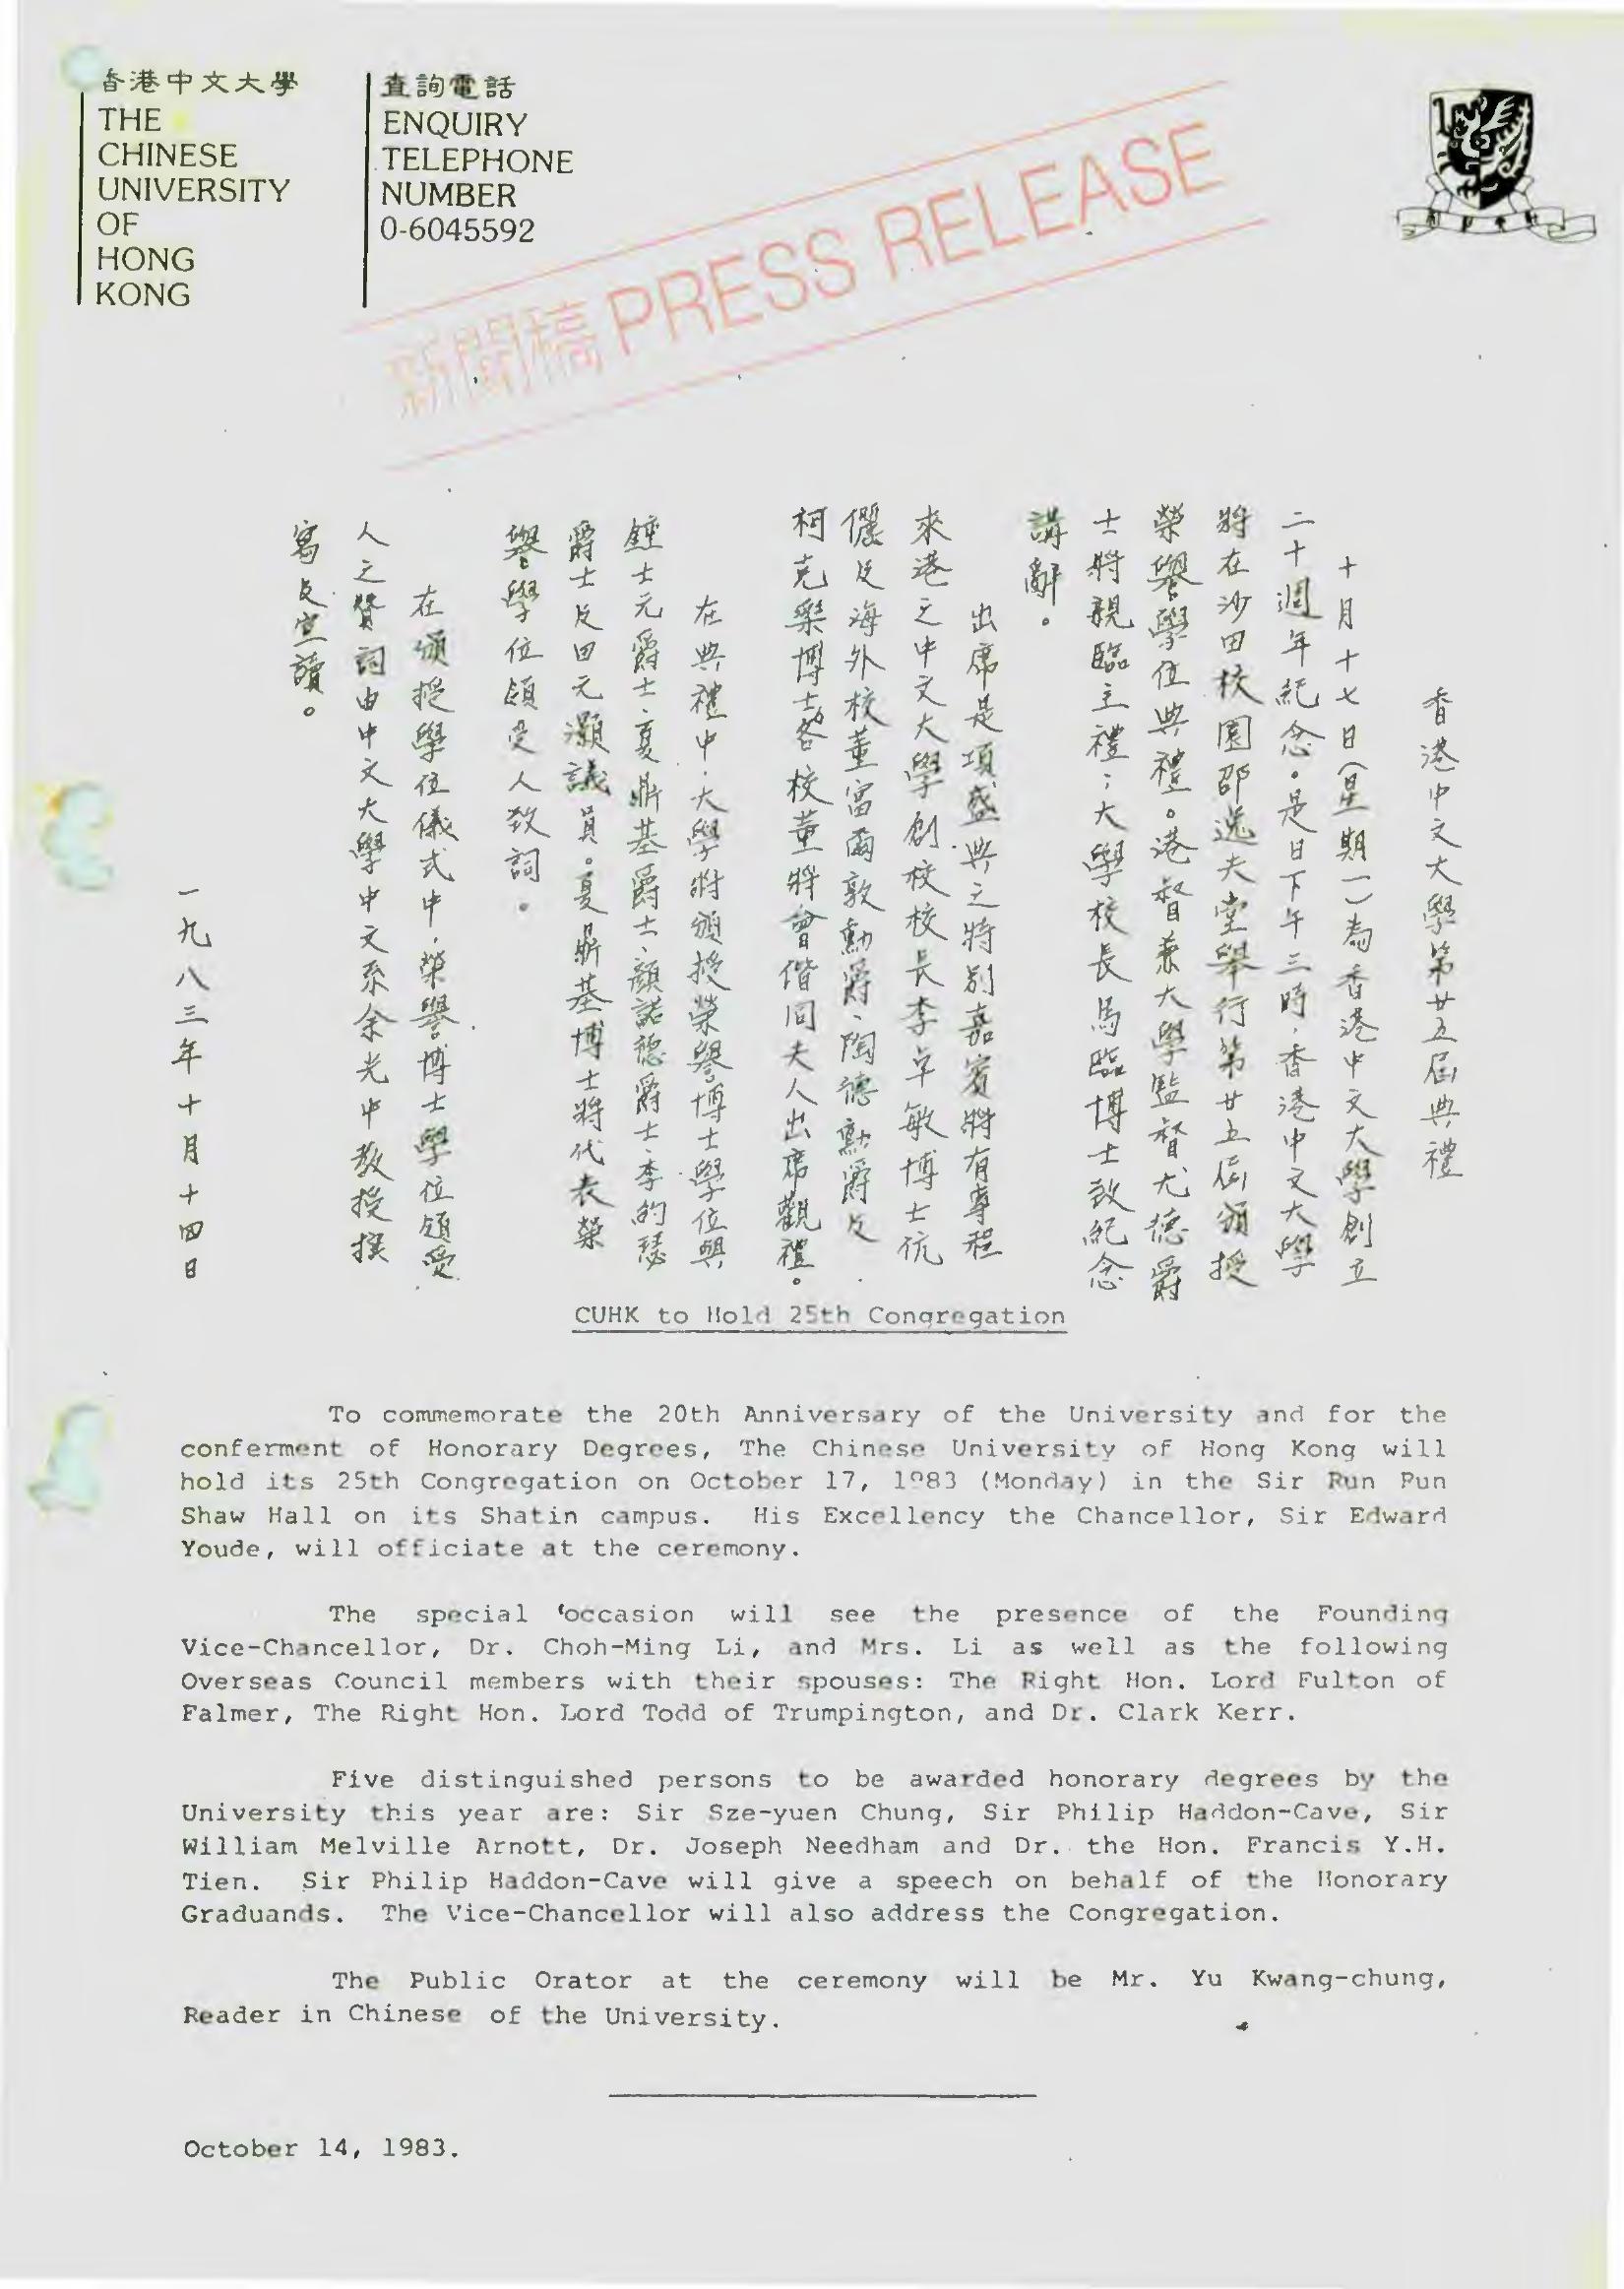 香港中文大學
THE
CHINESE
UNIVERSITY
OF
HONG
KONG
查詢電話
ENQUIRY
TELEPHONE
NUMBER
0-6045592
新聞稿 PRESS RELEASE
香港中文大學第廿五屆典禮
十月十七日(星期一)為香港中文大學創立
二十週年紀念。是日下午三時,香港中文大學
將在沙田校園邵逸夫堂舉行第廿五屆頒授
榮譽學位典禮。港督兼大學監督尤德爵
士將親臨主禮;大學校長馬臨博士致紀念
講辭。
出席是項盛典之特別嘉賓將有專程
來港之中文大學創校校長李卓敏博士伉
儷及海外校董富爾敦勳爵、陶德勳爵及
柯克樂博士等。各校董將會偕同夫人出席觀禮。
在典禮中,大學將頒授榮譽博士學位與
鍾士元爵士、夏鼎基爵士、顏諾德爵士、李約瑟
爵士及田元灝議員。夏鼎基博士將代表榮
譽學位領受人致詞。
在頒授學位儀式中,榮譽博士學位領受
人之贊詞由中文大學中文系余光中教授撰
寫及宣讀。
一九八三年十月十四日
CUHK to Hold 25th Congregation
To commemorate the 20th Anniversary of the University and for the
conferment of Honorary Degrees, The Chinese University of Hong Kong will
hold its 25th Congregation on October 17, 1983 (Monday) in the Sir Run Run
Shaw Hall on its Shatin campus. His Excellency the Chancellor, Sir Edward
Youde, will officiate at the ceremony.
The special occasion will see the presence of the Founding
Vice-Chancellor, Dr. Choh-Ming Li, and Mrs. Li as well as the following
Overseas Council members with their spouses: The Right Hon. Lord Fulton of
Falmer, The Right Hon. Lord Todd of Trumpington, and Dr. Clark Kerr.
Five distinguished persons to be awarded honorary degrees by the
University this year are: Sir Sze-yuen Chung, Sir Philip Haddon-Cave, Sir
William Melville Arnott, Dr. Joseph Needham and Dr. the Hon. Francis Y.H.
Tien. Sir Philip Haddon-Cave will give a speech on behalf of the Honorary
Graduands. The Vice-Chancellor will also address the Congregation.
The Public Orator at the ceremony will be Mr. Yu Kwang-chung,
Reader in Chinese of the University.
October 14, 1983.